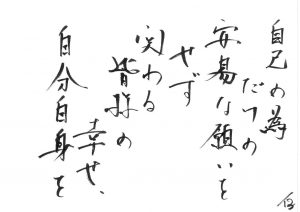 自己の為
だけの
安易な願いを
せず
関わる
皆様の
幸せ、
自分自身を